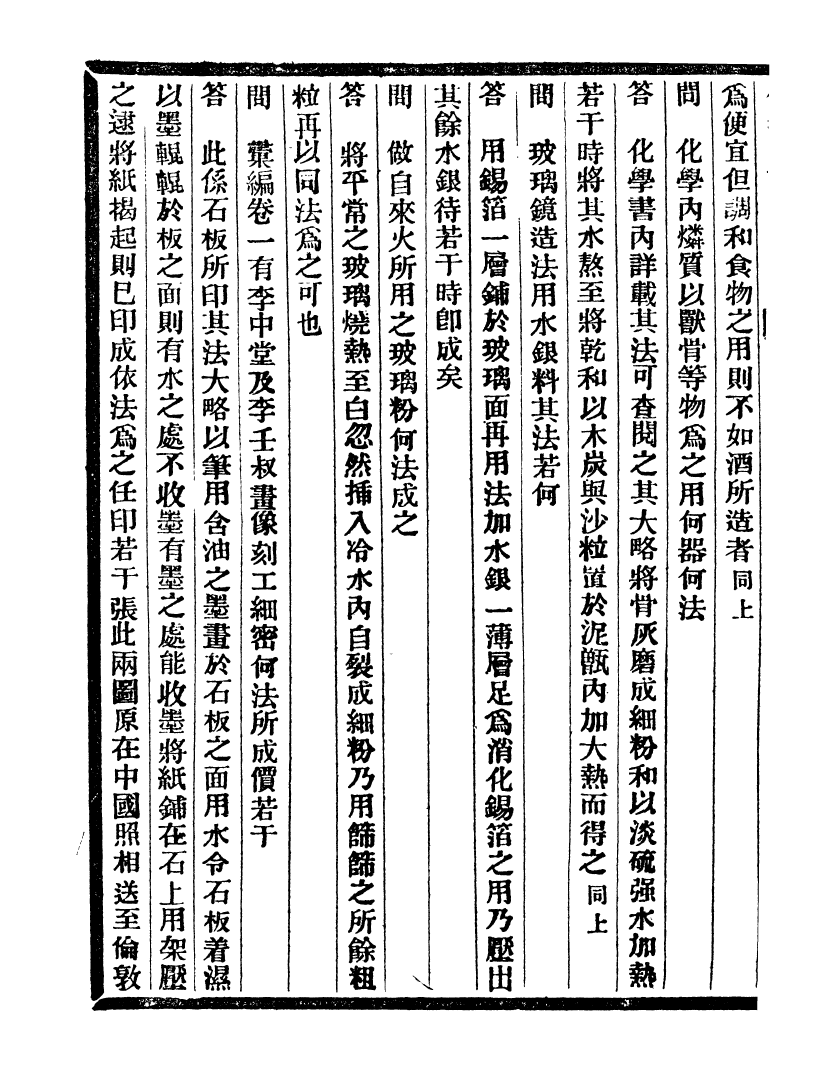 爲便宜但調和食物之用則不如酒所造者同上
問　化學內燐質以獸骨等物爲之用何器何法
答　化學書內詳載其法可查閱之其大略將骨灰磨成細粉和以淡硫强水加熱
若干時將其水熬至將乾和以木炭與沙粒置於泥甑內加大熱而得之同上
問　玻璃鏡造法用水銀料其法若何
答　用錫箔一層鋪於玻璃面再用法加水銀一薄層足爲消化錫箔之用乃壓出
其餘水銀待若干時卽成矣
問　做自來火所用之玻璃粉何法成之
答　將平常之玻璃燒熱至白忽然插入冷水內自裂成細粉乃用篩篩之所餘粗
粒再以同法爲之可也
問　彙編卷一有李中堂及李壬叔畫像刻工細密何法所成價若干
答　此係石板所印其法大略以筆用含油之墨畫於石板之面用水令石板着濕
以墨輥輥於板之面則有水之處不收墨有墨之處能收墨將紙鋪在石上用架壓
之逮將紙揭起則已印成依法爲之任印若干張此兩圖原在中國照相送至倫敦